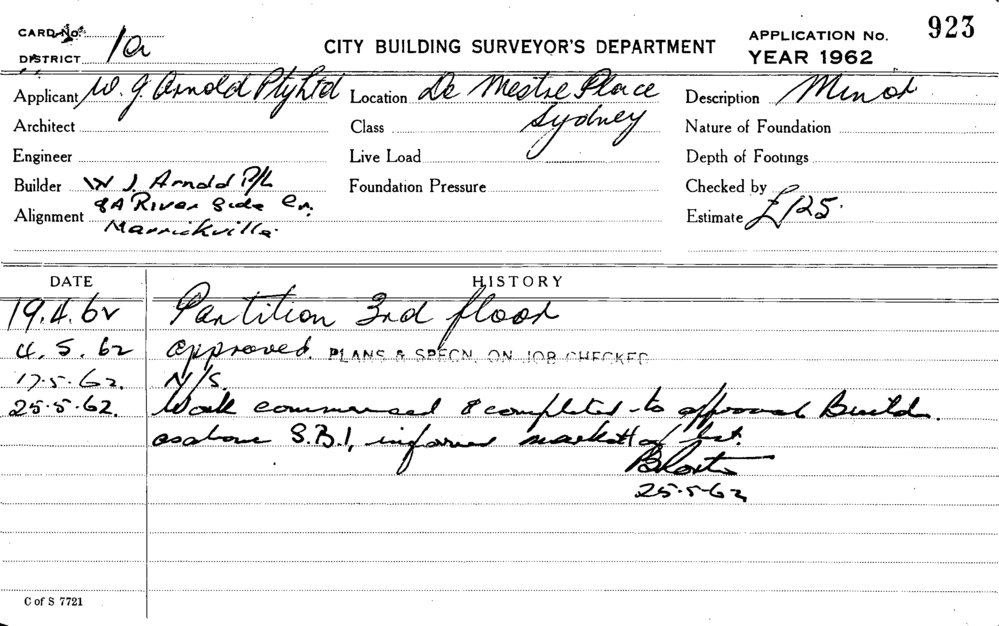 CARD No. 923
DISTRICT 1a CITY BUILDING SURVEYOR'S DEPARTMENT APPLICATION No.
YEAR 1962
Applicant W. J. Arnold Pty Ltd Location De Mestre Place Description Minor
Architect Class Sydney Nature of Foundation
Engineer Live Load Depth of Footings
Builder W J. Arnold P/L Foundation Pressure Checked by
Alignment 8A River Side Cr. Estimate £125.
Marrickville.
DATE HISTORY
19.4.62 Partition 3rd floor
4.5.62 approved. PLANS & SPECN. ON JOB CHECKED
17.5.62. N/S.
25.5.62. Work commenced & completed to approval Build.
as above S.B.I. informed
25.5.62
C of S 7721